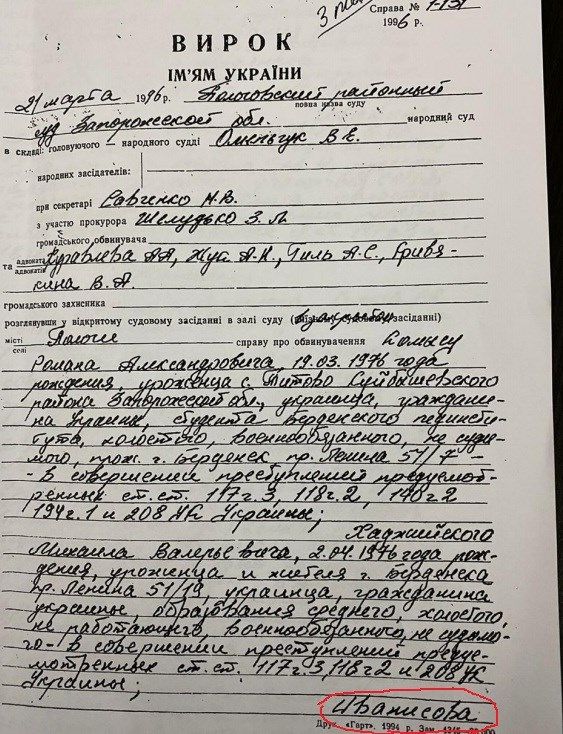 Справа № 1-131
1996 р.
ВИРОК
ІМ'ЯМ УКРАЇНИ
21 марта 1996 р. Пологовский районный
повна назва суду
суд Запорожской обл. народний суд
в складі: головуючого - народного судді Омельчук В.Е.
народних засідателів:
при секретарі Савченко Н.В.
з участю прокурора Шелудько З.Л.
громадського обвинувача
та адвоката Журавлева А.А, Жук А.Н., Гиль А.С., Гривя-
адвокатів
кина В.А.
громадського захисника
розглянувши у відкритому судовому засіданні в залі суду (виїзному судовому засіданні)
місті Пологи справу про обвинувачення Сомысу
селі
Романа Александровича, 19.03.1976 года
рождения, уроженца с. Титово Куйбышевского
района Запорожской обл., украинца, граждани-
на Украины, студента Бердянского пединсти-
тута, холостого, военнообязанного, не суди-
мого, прож. г. Бердянск пр. Ленина 51/7 -
- в совершении преступлений предусмот-
ренных ст.ст. 117 ч.3, 118 ч.2, 140 ч.2
194 ч.1 и 208 УК Украины;
Хаджийского
Михаила Валерьевича, 2.04.1976 года рож-
дения, уроженца и жителя г. Бердянска
пр. Ленина 51/19, украинца, гражданина
украины, образования среднего, холостого,
не работающего, военнообязанного, не судимо-
го - в совершении преступлений преду-
мотренных ст.ст. 117 ч.3, 118 ч2 и 208 УК
Украины;
Иванисова
Друк. «Гарт», 1994 р. Зам.